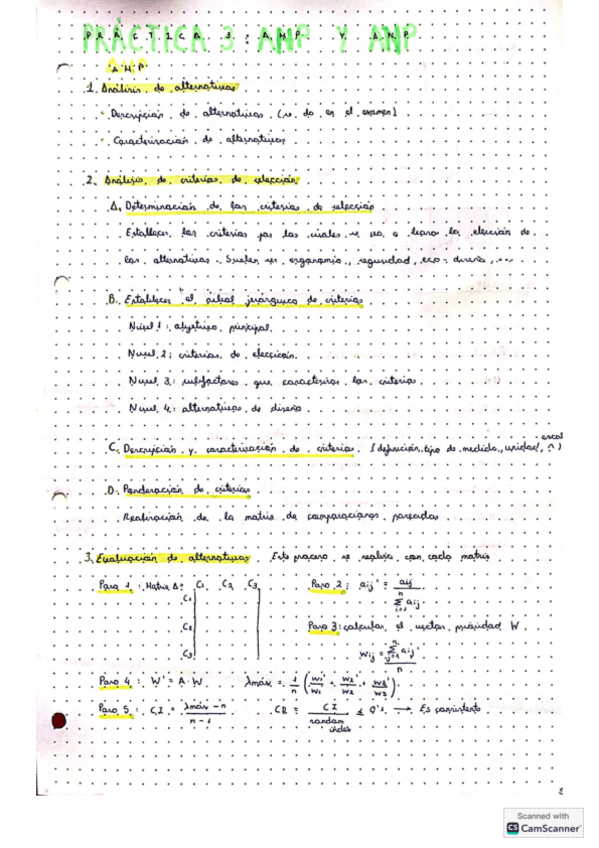 PRÁCTICA 3: AHP Y ANP
AHP
1. Análisis de alternativas
- Descripción de alternativas (se da en el examen)
- Caracterización de alternativas
2. Análisis de criterios de selección
A. Determinación de los criterios de selección
Establecer los criterios por los cuales se va a llevar la elección de
las alternativas. Suelen ser ergonomía, seguridad, eco-diseño, ...
B. Establecer el árbol jerárquico de criterios
Nivel 1: objetivo principal
Nivel 2: criterios de elección
Nivel 3: subfactores que caracteriza los criterios
Nivel 4: alternativas de diseño
C. Descripción y caracterización de criterios (definición, tipo de medida, unidad, ^)
D. Ponderación de criterios
Realización de la matriz de comparaciones pareadas
3. Evaluación de alternativas Este proceso se realiza con cada matriz
Paso 1: Matriz A: C1 C2 C3
C1
C2
C3
Paso 2: aij' = aij / Σ aij
Paso 3: calcular el vector prioridad W
Wij = Σ aij' / n
Paso 4: W' = A·W λmáx = 1/n (W1'/W1 + W2'/W2 + W3'/W3)
Paso 5: CI = λmáx - n / n - 1 CR = CI / random index ≤ 0'1 → Es consistente
Scanned with
CS CamScanner